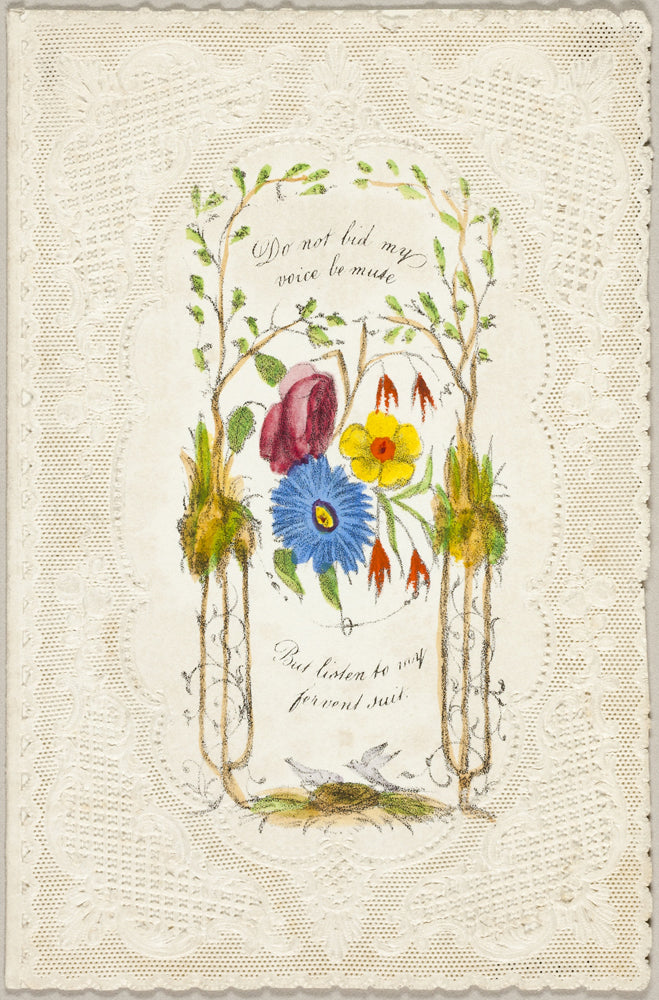 Do not bid my
voice be mute
But listen to my
fervent suit.